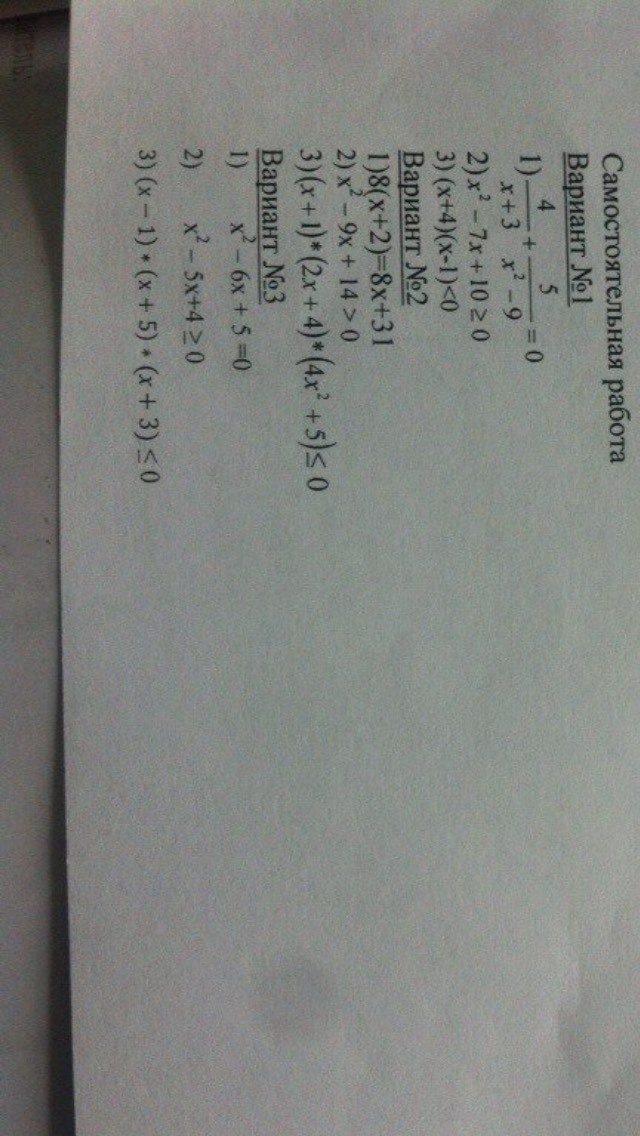 Самостоятельная работа
Вариант №1
1) 4/(x+3) + 5/(x² − 9) = 0
2) x² − 7x + 10 ≥ 0
3) (x+4)(x-1)<0
Вариант №2
1)8(x+2)=8x+31
2) x² − 9x + 14 > 0
3)(x + 1)*(2x + 4)*(4x² + 5)≤ 0
Вариант №3
1) x² − 6x + 5 =0
2) x² − 5x+4 ≥ 0
3) (x − 1) * (x + 5) * (x + 3) ≤ 0